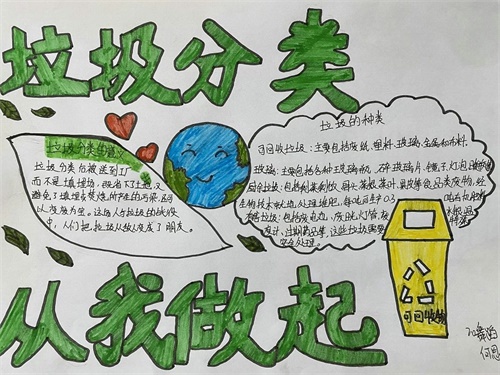 垃圾分类
垃圾分类的意义
垃圾分类后被送到工厂
而不是填埋场，既省下了土地，又
避免了填埋或焚烧所产生的污染，还可
以变废为宝。这场人与垃圾的战役
中，人们把垃圾从敌人变成了朋友。
垃圾的种类
可回收垃圾：主要包括废纸、塑料、玻璃、金属和布料。
玻璃：主要包括各种玻璃瓶、碎玻璃片、镜子、灯泡
厨余垃圾：包括剩菜剩饭、骨头、菜根菜叶、果皮等食品类废物，经
生物技术就地处理堆肥，每吨可生产0.3
垃圾：包括废电池、废日光灯管、
度计、过期药品等，这些垃圾需要
安全处理。
可回收物
从我做起